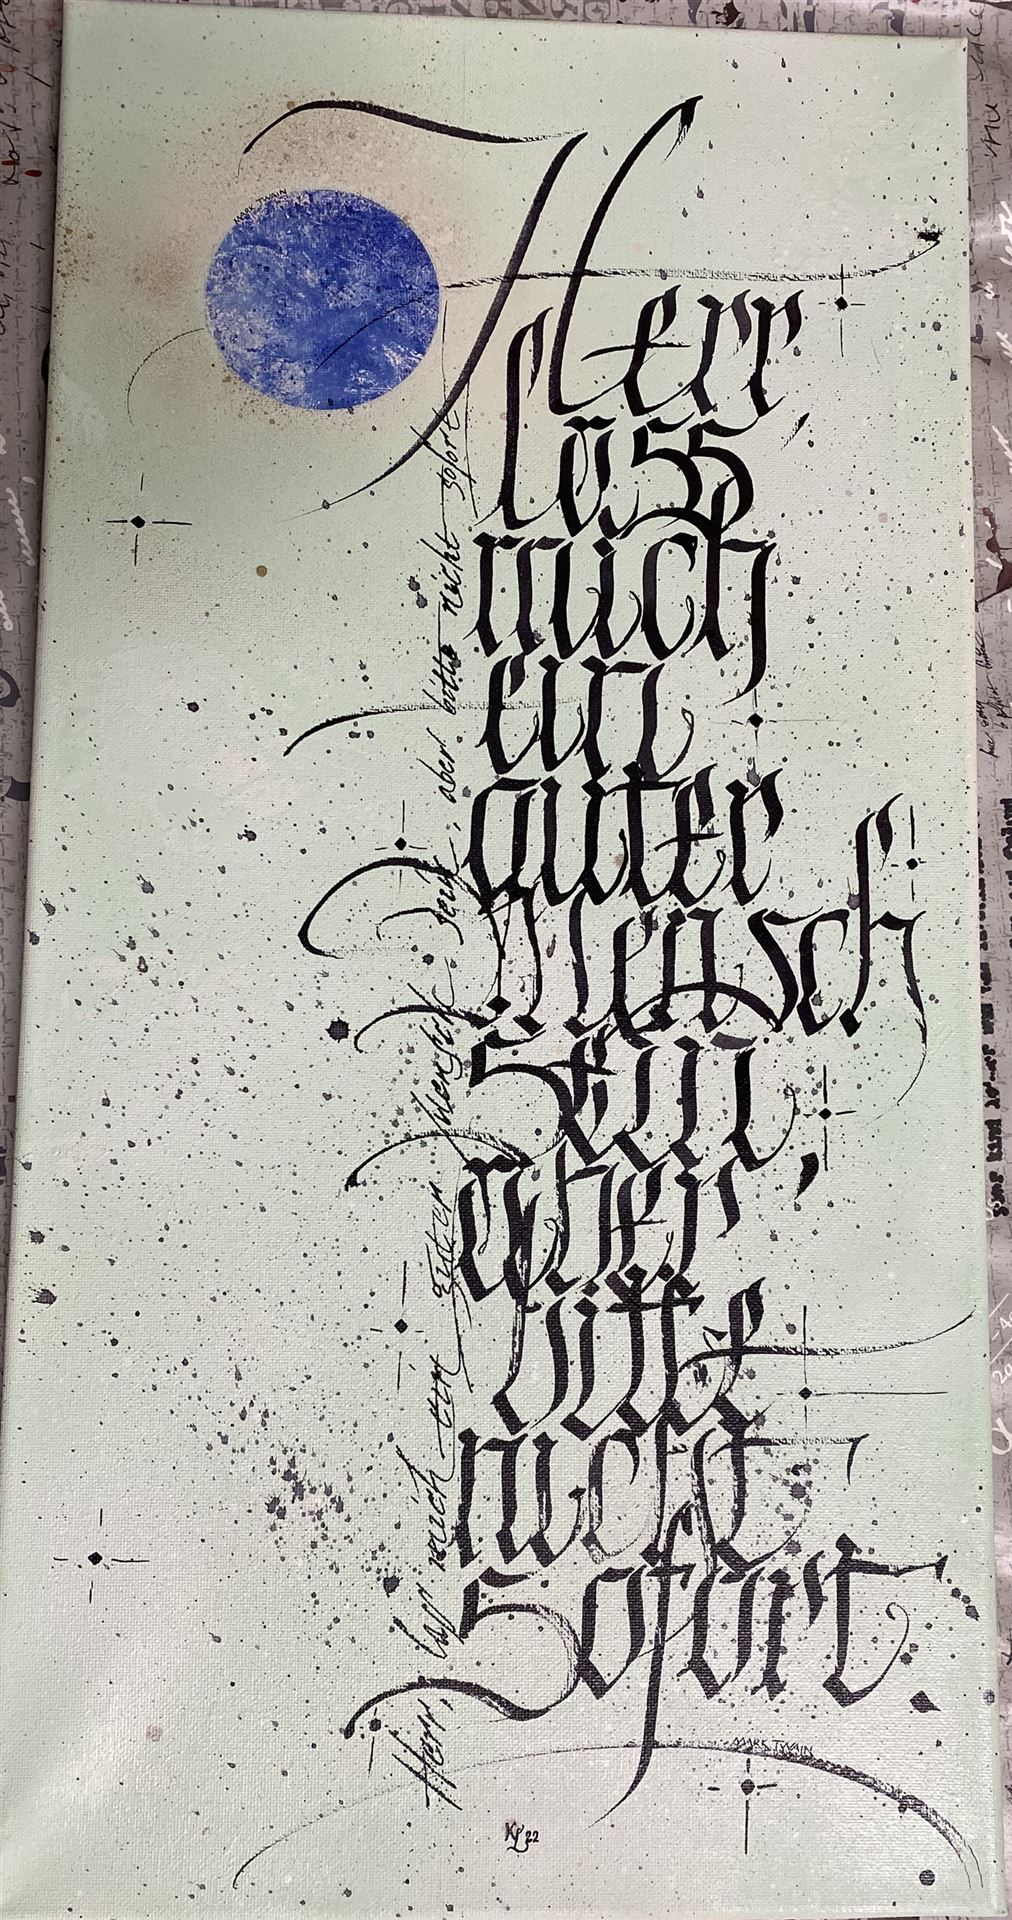 MARK TWAIN
Herr,
lass
mich
ein
guter
Mensch
sein,
aber
bitte
nicht
sofort.
Herr, lass mich ein guter Mensch sein, aber bitte nicht sofort
MARK TWAIN
KL 22